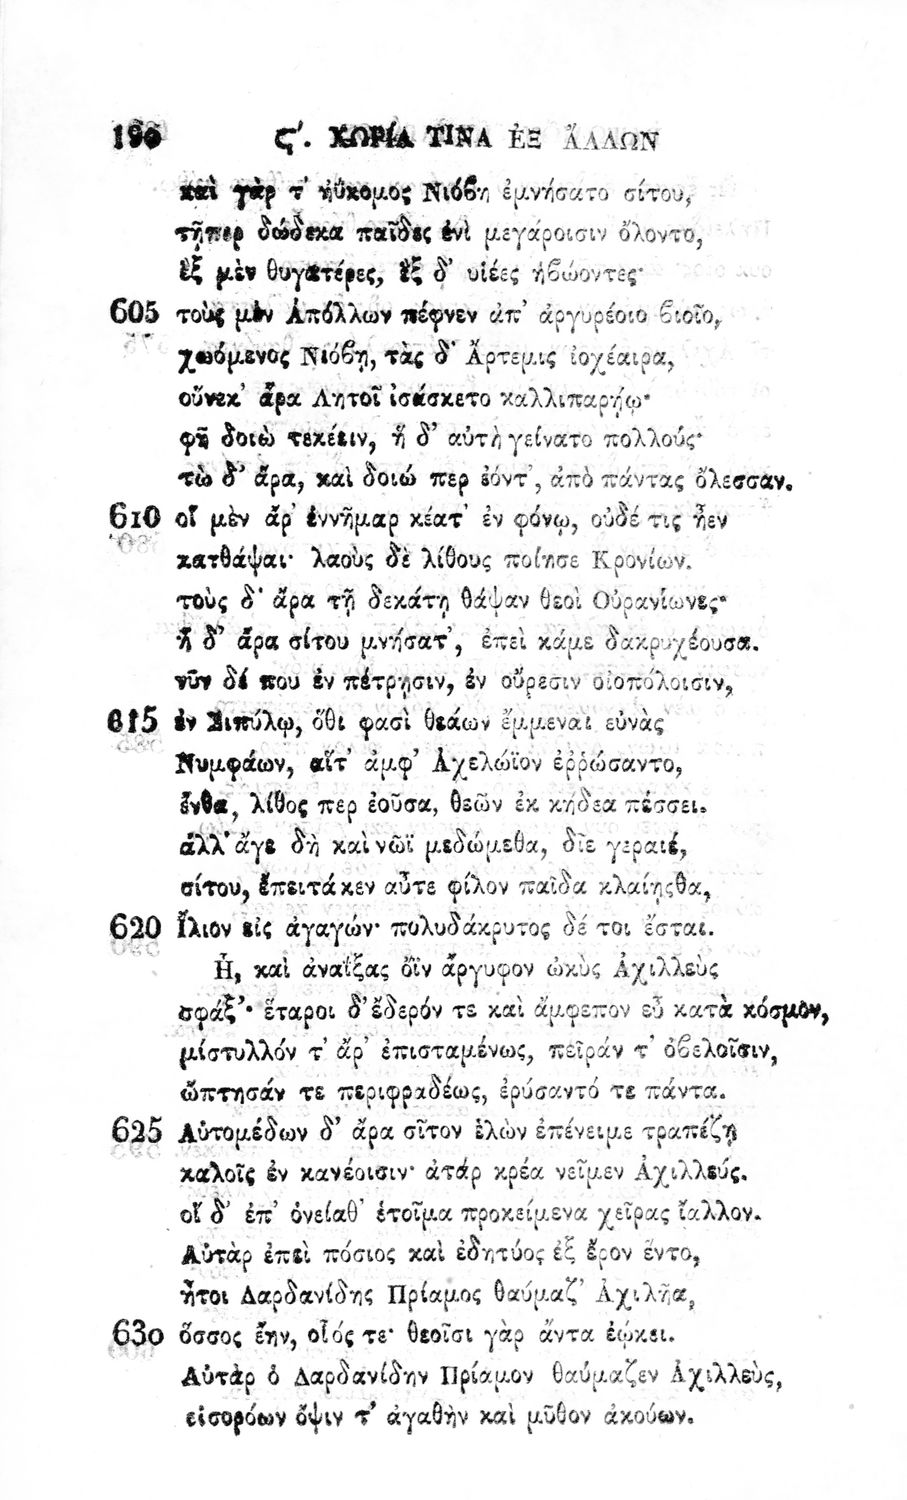 190 Ϛ'. ΧΩΡΙΑ ΤΙΝΑ ἘΞ ἌΛΛΩΝ
καὶ γὰρ τ' ἠΰκομος Νιόβη ἐμνήσατο σίτου,
τῇπερ δώδεκα παῖδες ἐνὶ μεγάροισιν ὄλοντο,
ἓξ μὲν θυγατέρες, ἓξ δ' υἱέες ἡβώοντες·
605 τοὺς μὲν Ἀπόλλων πέφνεν ἀπ' ἀργυρέοιο βιοῖο,
χωόμενος Νιόβῃ, τὰς δ' Ἄρτεμις ἰοχέαιρα,
οὕνεκ' ἄρα Λητοῖ ἰσάσκετο καλλιπαρῄῳ·
φῆ δοιὼ τεκέειν, ἡ δ' αὐτὴ γείνατο πολλούς·
τὼ δ' ἄρα, καὶ δοιώ περ ἐόντ', ἀπὸ πάντας ὄλεσσαν.
610 οἳ μὲν ἄρ' ἐννῆμαρ κέατ' ἐν φόνῳ, οὐδέ τις ἦεν
κατθάψαι· λαοὺς δὲ λίθους ποίησε Κρονίων.
τοὺς δ' ἄρα τῇ δεκάτῃ θάψαν θεοὶ Οὐρανίωνες·
ἡ δ' ἄρα σίτου μνήσατ', ἐπεὶ κάμε δακρυχέουσα.
νῦν δέ που ἐν πέτρῃσιν, ἐν οὔρεσιν οἰοπόλοισιν,
615 ἐν Σιπύλῳ, ὅθι φασὶ θεάων ἔμμεναι εὐνὰς
Νυμφάων, αἵτ' ἀμφ' Ἀχελώϊον ἐῤῥώσαντο,
ἔνθα, λίθος περ ἐοῦσα, θεῶν ἐκ κήδεα πέσσει.
ἀλλ' ἄγε δὴ καὶ νῶϊ μεδώμεθα, δῖε γεραιέ,
σίτου, ἔπειτά κεν αὖτε φίλον παῖδα κλαίῃςθα,
620 Ἴλιον εἰς ἀγαγών· πολυδάκρυτος δέ τοι ἔσται.
Ἦ, καὶ ἀναΐξας ὄϊν ἄργυφον ὠκὺς Ἀχιλλεὺς
σφάξ'· ἕταροι δ' ἔδερόν τε καὶ ἄμφεπον εὖ κατὰ κόσμον,
μίστυλλόν τ' ἄρ' ἐπισταμένως, πεῖράν τ' ὀβελοῖσιν,
ὤπτησάν τε περιφραδέως, ἐρύσαντό τε πάντα.
625 Αὐτομέδων δ' ἄρα σῖτον ἑλὼν ἐπένειμε τραπέζῃ
καλοῖς ἐν κανέοισιν· ἀτάρ κρέα νεῖμεν Ἀχιλλεύς.
οἳ δ' ἐπ' ὀνείαθ' ἑτοῖμα προκείμενα χεῖρας ἴαλλον.
Αὐτὰρ ἐπεὶ πόσιος καὶ ἐδητύος ἐξ ἔρον ἕντο,
ἤτοι Δαρδανίδης Πρίαμος θαύμαζ' Ἀχιλῆα,
630 ὅσσος ἔην, οἷός τε· θεοῖσι γὰρ ἄντα ἐῴκει.
Αὐτὰρ ὁ Δαρδανίδην Πρίαμον θαύμαζεν Ἀχιλλεὺς,
εἰσορόων ὄψιν τ' ἀγαθὴν καὶ μῦθον ἀκούων.